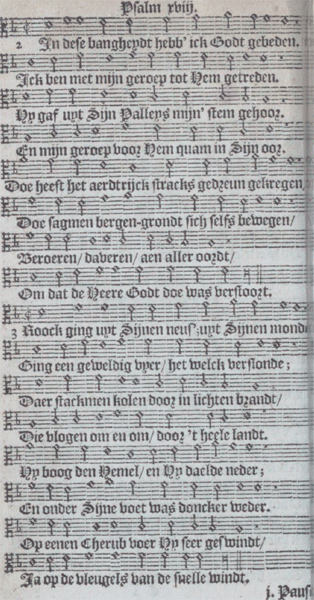 Psalm xviij.
2 In dese bangheydt hebb' ick Godt gebeden.
Ick ben met mijn geroep tot Hem getreden.
Hy gaf uyt Sijn Palleys mijn' stem gehoor.
En mijn geroep voor Hem quam in Sijn oor.
Doe heeft het aerdtrijck stracks gedreun gekregen,
Doe sagmen bergen-grondt sich selfs bewegen/
Beroeren/ daveren/ aen aller oordt/
Om dat de Heere Godt doe was verstoort.
3 Roock ging uyt Sijnen neus; uyt Sijnen mondt
Ging een geweldig vyer/ het welck verslonde;
Daer stackmen kolen door in lichten brandt/
Die vlogen om en om/ door 't heele landt.
Hy boog den Hemel/ en Hy daelde neder;
En onder Sijne voet was doncker weder.
Op eenen Cherub voer Hy seer geswindt/
Ja op de vleugels van de snelle windt.
j. Paus